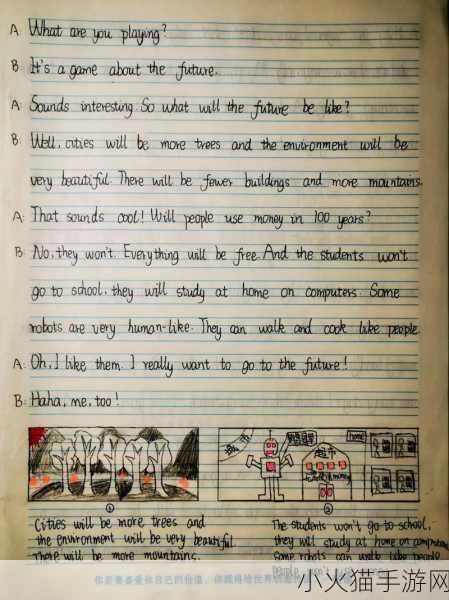 A: What are you playing?
B: It's a game about the future.
A: Sounds interesting. So what will the future be like?
B: Well, cities will be more trees and the environment will be
very beautiful. There will be fewer buildings and more mountains.
A: That sounds cool! Will people use money in 100 years?
B: No, they won't. Everything will be free. And the students won't
go to school, they will study at home on computers. Some
robots are very human-like. They can walk and cook like people
A: Oh, I like them. I really want to go to the future!
B: Haha, me, too!
城市
超市
home
① ②
Cities will be more trees and
the environment will be very beautiful.
There will be more mountains.
The students won't go to school,
they will study at home on computers
Some robots can walk like people
People won't use money
你若要喜爱你自己的价值,你就得给世界创造价值
小火猫手游网